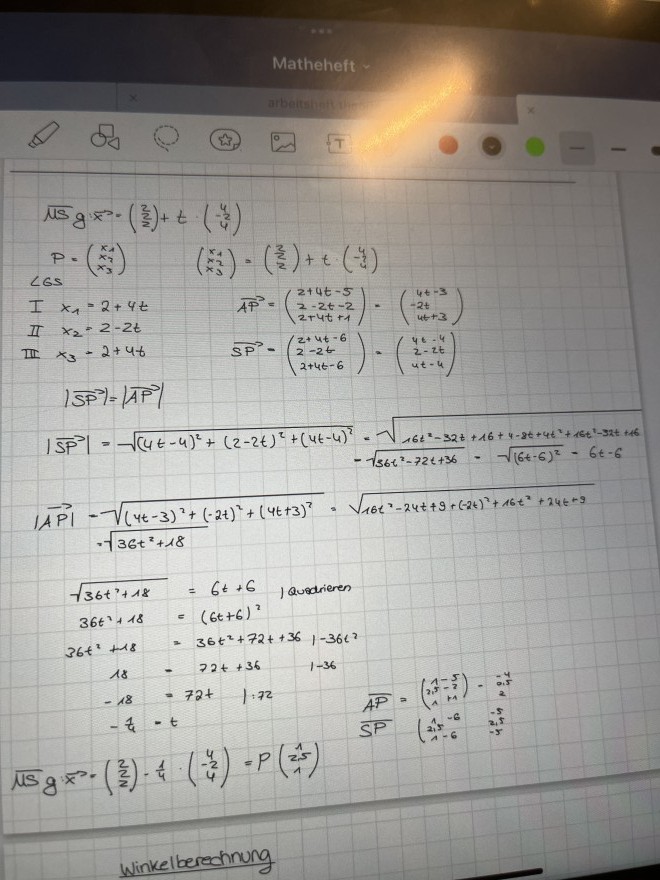 Matheheft
T
MS g: x⃗ = (2 2 2) + t · (4 -2 4)
P = (x₁ x₂ x₃)   (x₁ x₂ x₃) = (2 2 2) + t · (4 -2 4)
LGS
I x₁ = 2 + 4t   AP⃗ = (2+4t-5 2-2t-2 2+4t+1) = (4t-3 -2t 4t+3)
II x₂ = 2 - 2t
III x₃ = 2 + 4t   SP⃗ = (2+4t-6 2-2t 2+4t-6) = (4t-4 2-2t 4t-4)
|SP⃗| = |AP⃗|
|SP⃗| = √(4t-4)² + (2-2t)² + (4t-4)² = √16t²-32t+16+4-8t+4t²+16t²-32t+16
= √36t²-72t+36 = √(6t-6)² = 6t-6
|AP⃗| = √(4t-3)² + (-2t)² + (4t+3)² = √16t²-24t+9+(-2t)²+16t²+24t+9
= √36t²+18
√36t²+18 = 6t+6 | Quadrieren
36t²+18 = (6t+6)²
36t²+18 = 36t²+72t+36 | -36t²
18 = 72t+36 | -36
-18 = 72t | :72
-1/4 = t
AP = (1-5 2,5-2 1+1) = -4 0,5 2
SP (1-6 2,5 1-6) -5 2,5 -5
MS g: x⃗ = (2 2 2) - 1/4 · (4 -2 4) = P (1 2,5 1)
Winkelberechnung